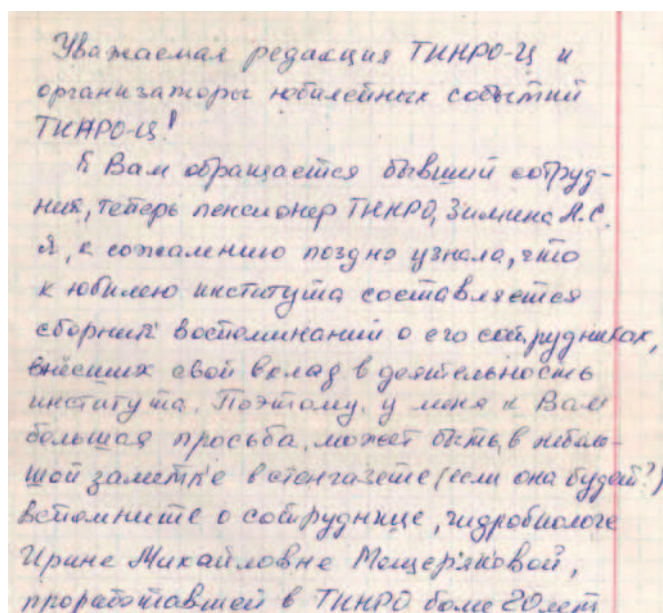 Уважаемая редакция ТИНРО-Ц и
организаторы юбилейных событий
ТИНРО-Ц!
К Вам обращается бывший сотруд-
ник, теперь пенсионер ТИНРО, Зимина Л.С.
Я, к сожалению поздно узнала, что
к юбилею института составляется
сборник воспоминаний о его сотрудниках,
внёсших свой вклад в деятельность
института. Поэтому, у меня к Вам
большая просьба, может быть, в неболь-
шой заметке в стенгазете (если она будет?)
вспомните о сотруднице, гидробиологе
Ирине Михайловне Мещеряковой,
проработавшей в ТИНРО более 20 лет